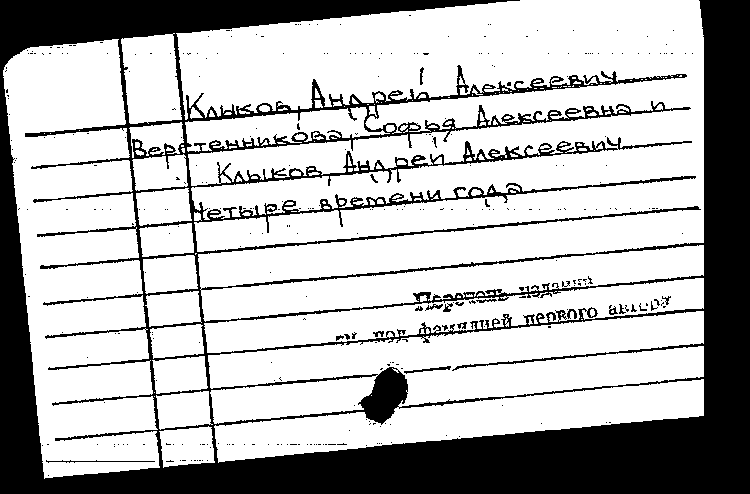 Клыков, Андрей Алексеевич
Веретенникова, Софья Алексеевна и
Клыков, Андрей Алексеевич
Четыре времени года
Перечень изданий
см. под фамилией первого автора